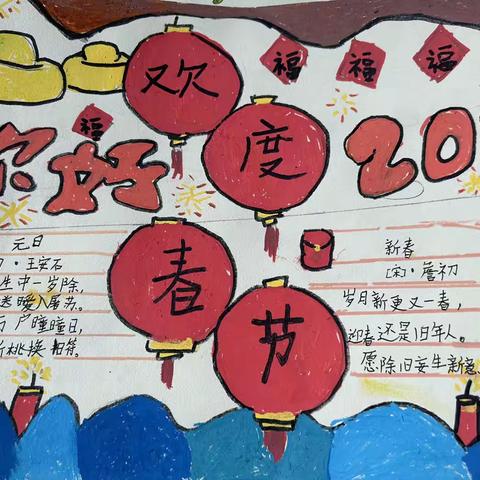 欢度
春节
福 福 福
福
你好
20
元日
·王安石
生中一岁除,
送暖入屠苏。
户曈曈日,
新桃换旧符。
新春
[宋]·詹初
岁月新更又一春,
迎春还是旧年人。
愿除旧妄生新意